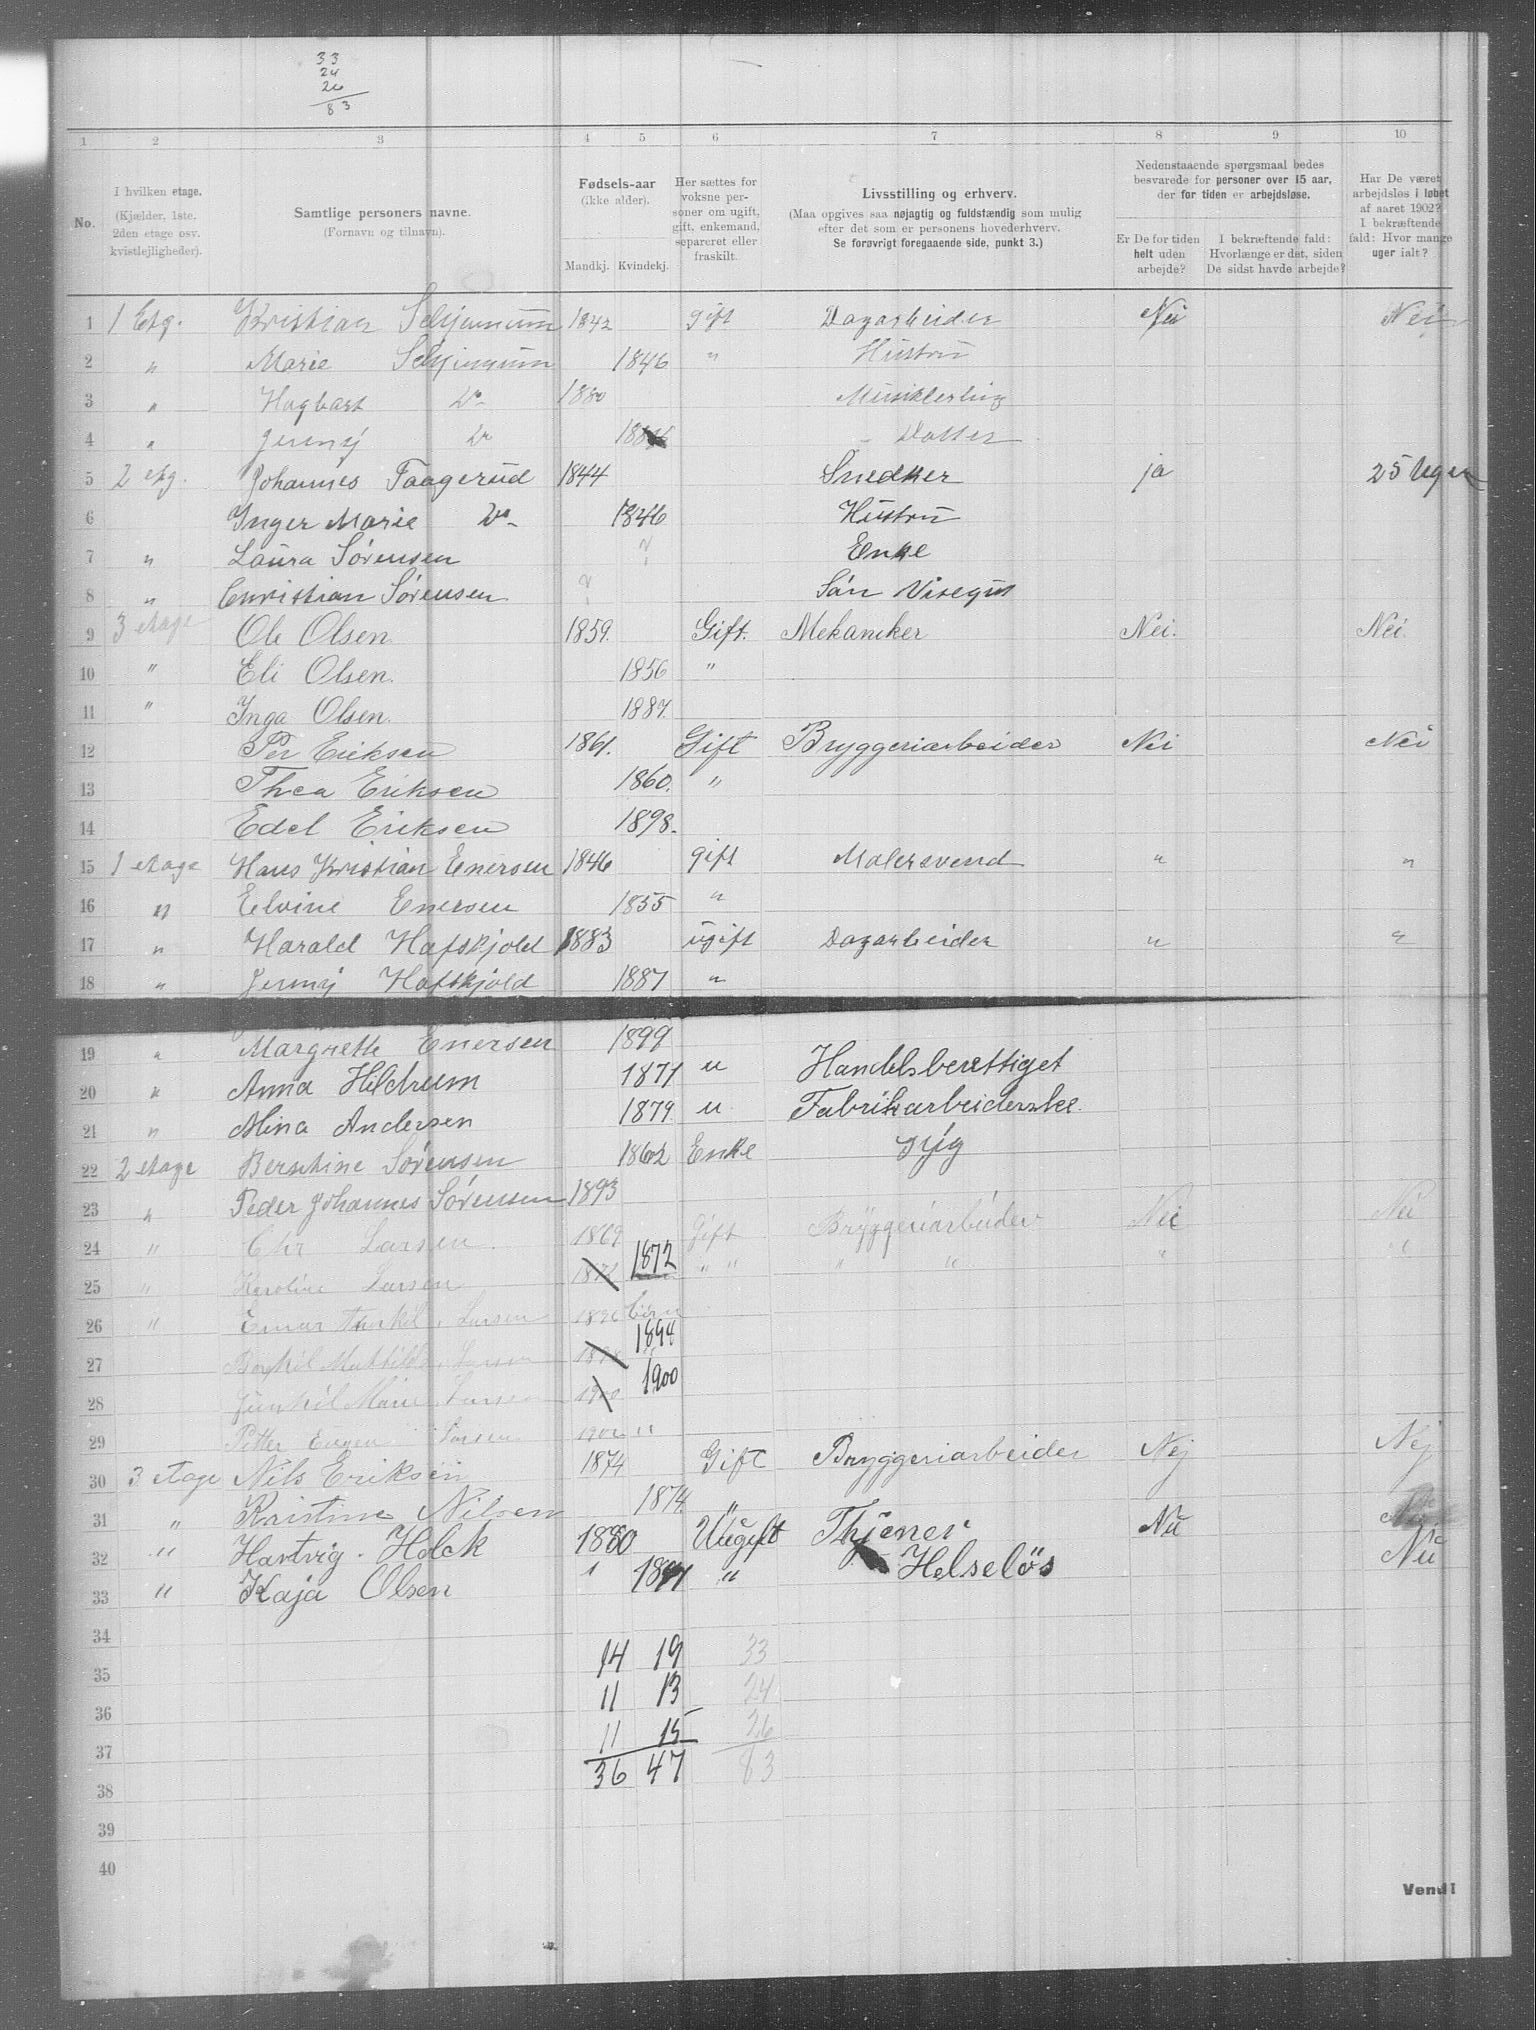 33
24
26
83
1 2 3 4 5 6 7 8 9 10
No.
I hvilken etage.
(Kjælder, 1ste.
2den etage osv.
kvistlejligheder).
Samtlige personers navne.
(Fornavn og tilnavn).
Fødsels-aar
(ikke alder).
Mandkj. Kvindekj.
Her sættes for
voksne per-
soner om ugift,
gift, enkemand,
separeret eller
fraskilt.
Livsstilling og erhverv.
(Maa opgives saa nøjagtig og fuldstændig som mulig
efter det som er personens hovederhverv.
Se forøvrigt foregaaende side, punkt 3.)
Nedenstaaende spørgsmaal bedes
besvarede for personer over 15 aar,
der for tiden er arbejdsløse.
Er De for tiden
helt uden
arbejde?
I bekræftende fald:
Hvorlænge er det, siden
De sidst havde arbejde?
Har De været
arbejdsløs i løbet
af aaret 1902?
I bekræftende
fald: Hvor mange
uger ialt?
1 1 Etg. Kristian 1842 gift Dagarbeider Nei Nei
2 " Marie 1846 " Hustru
3 " Hagbart Do 1880
4 " Jenny Do Datter
5 2 etg. Johannes Faagerud 1844 Snedker ja 25 Uger
6 Inger Marie Do 1846 Hustru
7 " Laura Sørensen ? Enke
8 " Christian Sørensen ? Søn Visegut
9 3 etage Ole Olsen 1859. Gift. Mekaniker Nei. Nei.
10 " Eli Olsen. 1856 "
11 " Inga Olsen. 1887.
12 Per Eriksen 1861. Gift Bryggeriarbeider Nei Nei
13 Thea Eriksen 1860. "
14 Edel Eriksen 1898.
15 1 etage Hans Kristian Enersen 1846 gift Malersvend " "
16 " Elvine Enersen 1855 "
17 " Harald Hafskjold 1883 ugift Dagarbeider " "
18 " Jenny Hafskjold 1887 "
19 " Margrethe Enersen 1899
20 " Anna Hildrum 1871 u Handelsberettiget
21 " Alina Andersen 1879 u Fabrikarbeiderske.
22 2 etage Berntine Sørensen 1862 Enke Syg
23 " Peder Johannes Sørensen 1893
24 " Chr Larsen 1869 Gift Bryggeriarbeider Nei Nei
25 " Karoline Larsen 1872 1872 " " " " " "
26 " Einar Larsen 1896 børn
27 Larsen 1898
28 Marie Larsen 1900 1900
29 Petter Eugen Larsen 1902 "
30 3 etage Nils Eriksen 1874 Gift Bryggeriarbeider Nej Nej
31 " Kristine Nilsen 1874. "
32 " Hartvig. Holck 1880 Uugift Thjener Nei
33 " Kaja Olsen " " Helseløs Nei
34
35 14 19 33
36 11 13 24
37 11 15 26
38 36 47 83
39
40
Vend!